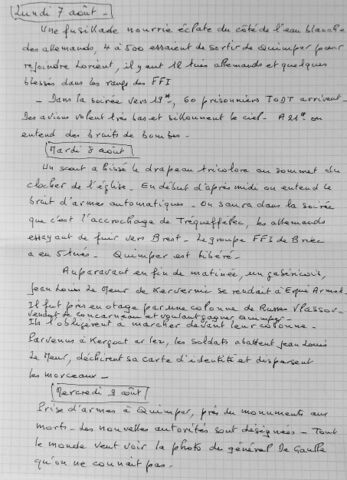 Lundi 7 août -
Une fusillade nourrie éclate du côté de l'eau blanche
des allemands, 4 à 500 essaient de sortir de Quimper pour
rejoindre Lorient, il y aura 12 tués allemands et quelques
blessés dans les rangs des FFI
- Dans la soirée vers 19h, 60 prisonniers TODT arrivent -
Des avions volent très bas et sillonnent le ciel - A 21h on
entend des bruits de bombes -
Mardi 8 août
Un scout a hissé le drapeau tricolore au sommet du
clocher de l'église - En début d'après midi on entend le
bruit d'armes automatiques - On saura dans la soirée
que c'est l'accrochage de Tréqueffelec, les allemands
essayant de fuir vers Brest - Le groupe FFI de Briec
a eu 5 tués - Quimper est libéré -
Auparavant en fin de matinée, un gabéricois,
Jean Louis Le Meur de Kervernic se rendait à Ergué Armel -
Il fut pris en otage par une colonne de Russes Vlassov -
venant de Concarneau et voulant gagner Quimper -
Ils l'obligèrent à marcher devant leur colonne -
Parvenus à Kergoat ar lez, les soldats abattent Jean Louis
Le Meur, déchirent sa carte d'identité et dispersent
les morceaux -
Mercredi 9 août
Prise d'armes à Quimper, près du monuments aux
morts - Des nouvelles autorités sont désignées - Tout
le monde veut voir la photo du général De Gaulle
qu'on ne connait pas -